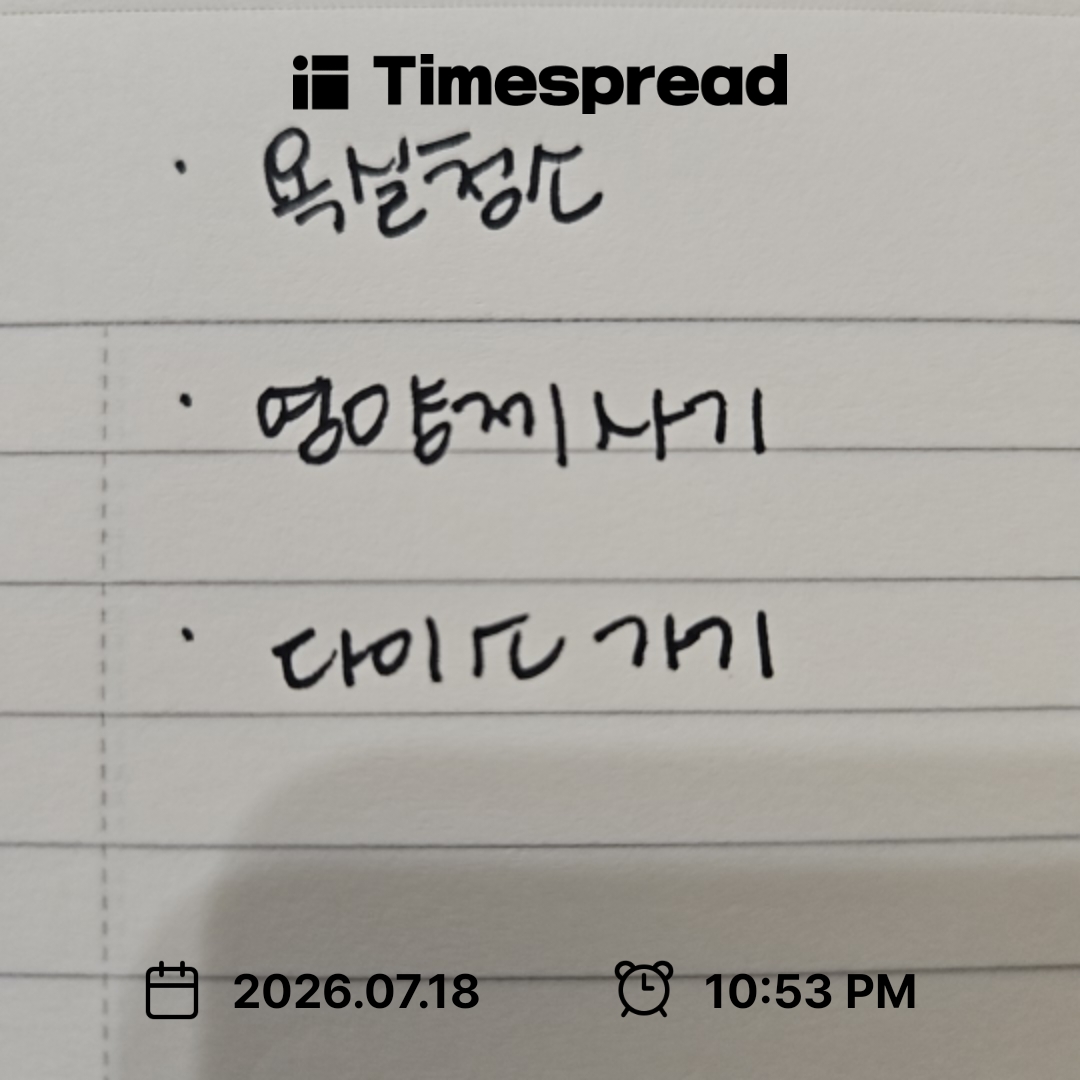 Timespread
· 욕실청소
· 영양제 사기
· 다이소 가기
2026.07.18 10:53 PM